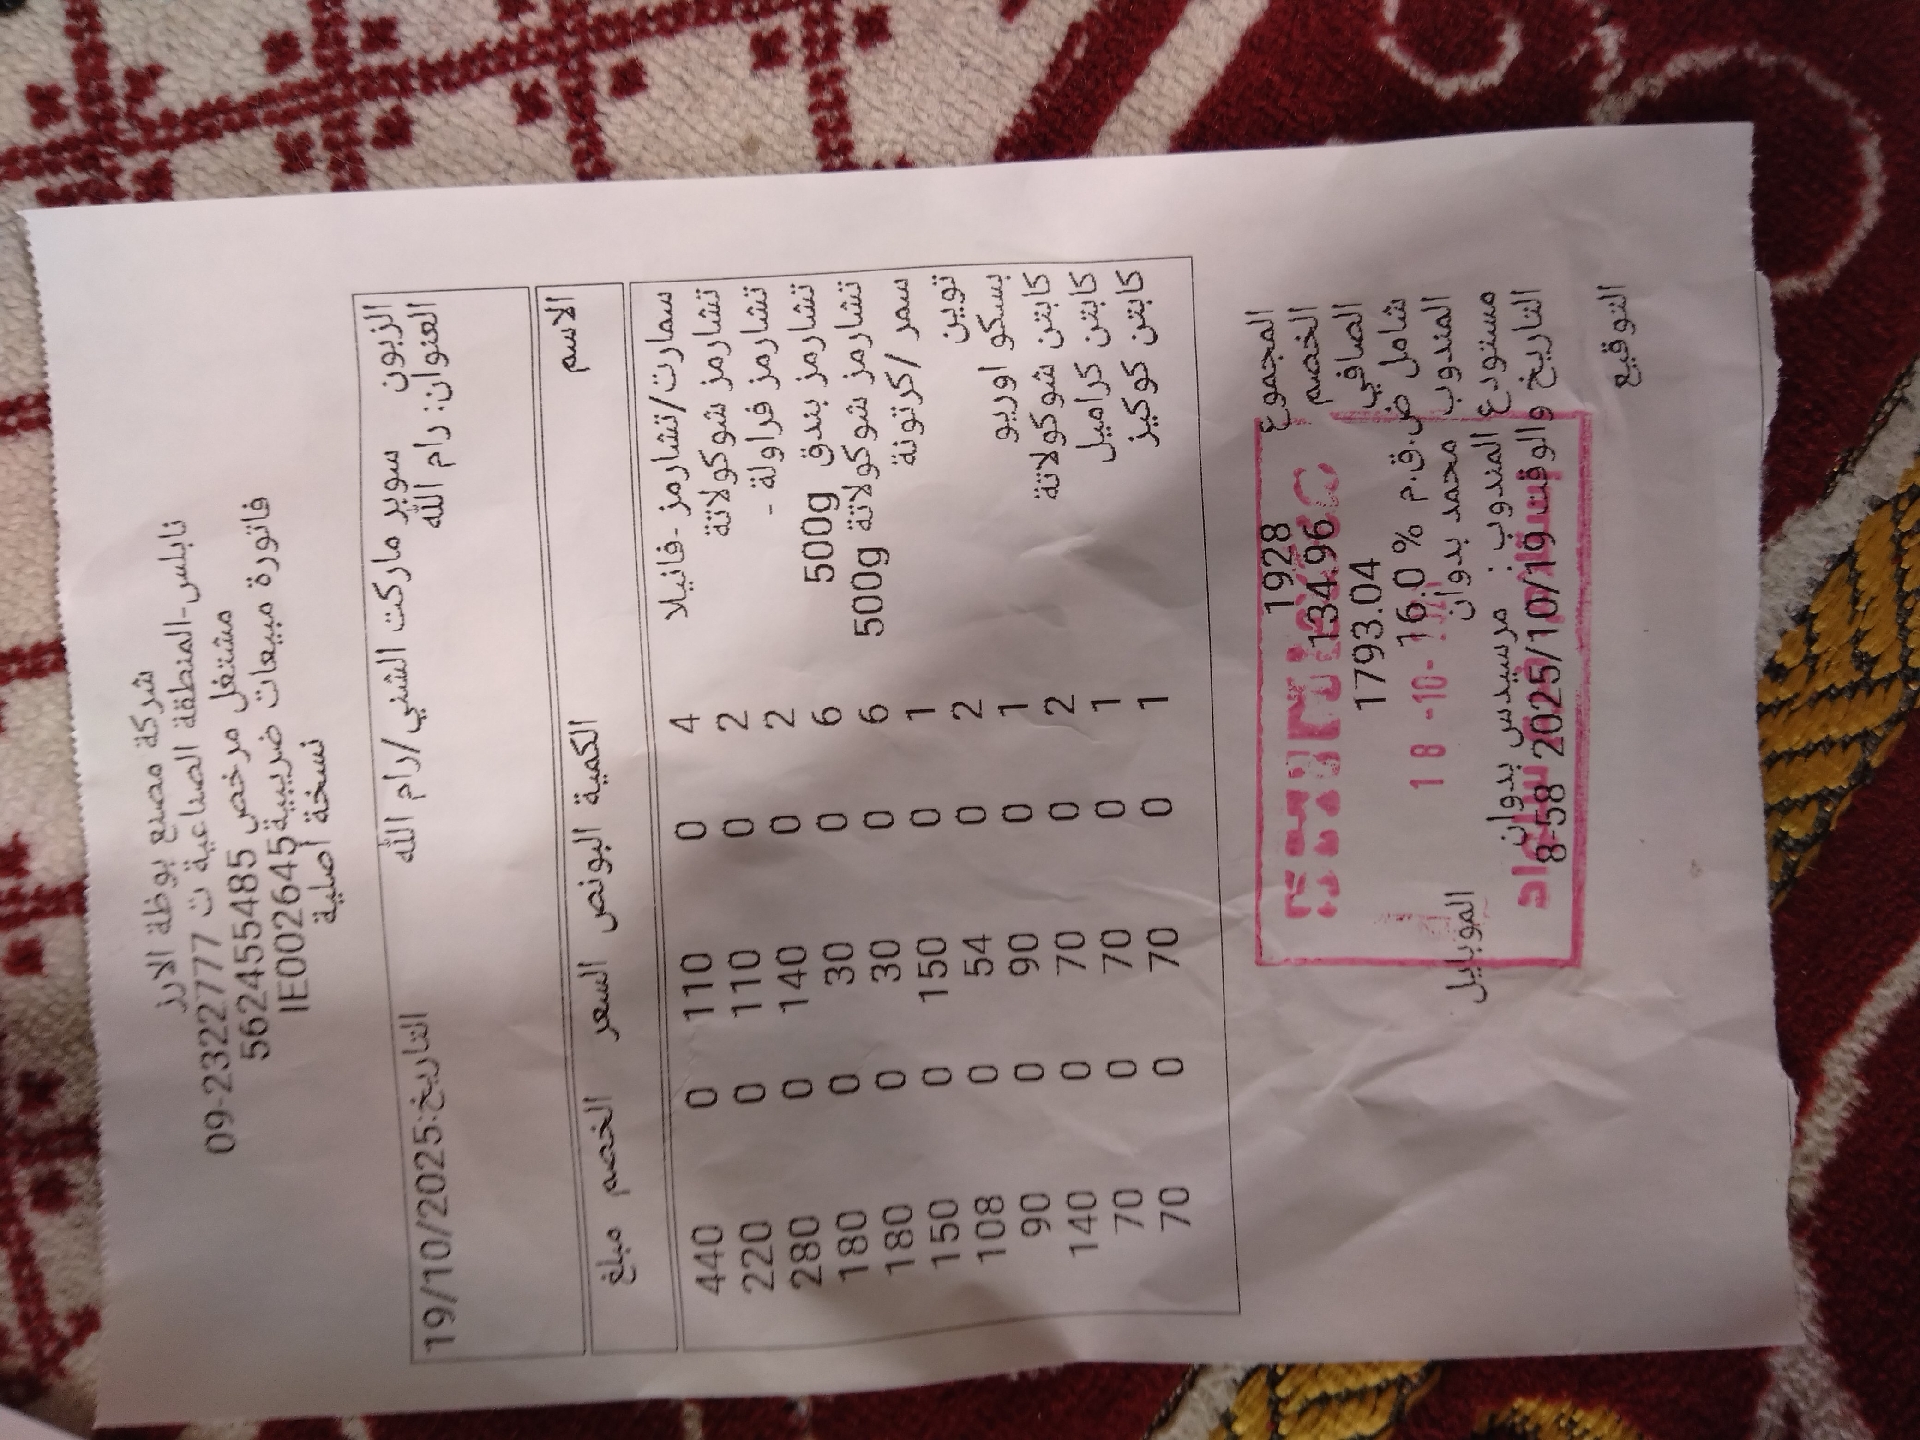 شركة مصنع بوظة الارز
نابلس-المنطقة الصناعية ت 09-2322777
مشتغل مرخص 562455485
فاتورة مبيعات ضريبية IE002645
نسخة اصلية
الزبون سوبر ماركت الشني/رام الله التاريخ:19/10/2025
العنوان: رام الله
الاسم الكمية البونص السعر الخصم مبلغ
سمارت/تشارمز -فانيلا 4 0 110 0 440
تشارمز شوكولاتة 2 0 110 0 220
تشارمز فراولة - 2 0 140 0 280
تشارمز بندق 500g 6 0 30 0 180
تشارمز شوكولاتة 500g 6 0 30 0 180
سمر /كرتونة 1 0 150 0 150
توين 2 0 54 0 108
بسكو اوريو 1 0 90 0 90
كابتن شوكولاتة 2 0 70 0 140
كابتن كراميل 1 0 70 0 70
كابتن كوكيز 1 0 70 0 70
المجموع 1928
الخصم 134.96
الصافي 1793.04
شامل ض.ق.م % 16.0
18 -10-
المندوب محمد بدوان الموبايل
مستودع المندوب : مرسيدس بدوان
التاريخ و الوقت 2025/10/19 8-58
التوقيع